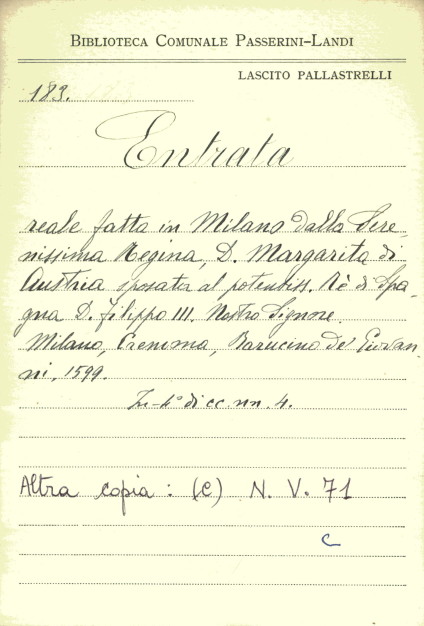 BIBLIOTECA COMUNALE PASSERINI-LANDI
LASCITO PALLASTRELLI
183.
Entrata
reale fatta in Milano dalla Sere-
nissima Regina, D. Margarita di
Austria sposata al potentiss. Rè di Spa-
gna D. Filippo III. Nostro Signore.
Milano, Cremona, Barucino de' Giovan-
ni, 1599.
In-4° di cc. nn. 4.
Altra copia : (C) N. V. 71
C